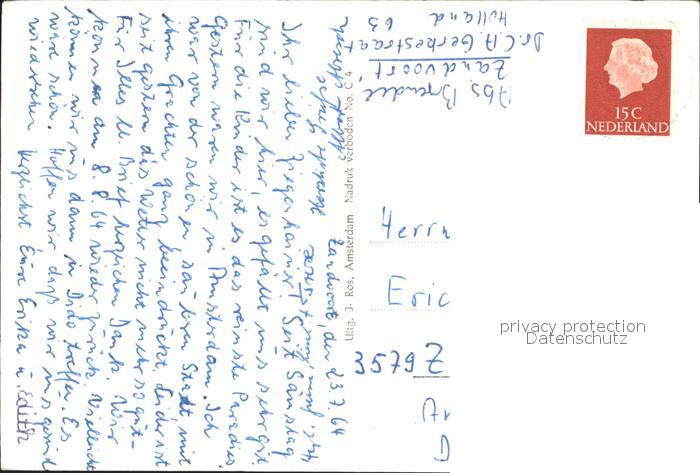 Abs. Brendel
Zandvoort
Dr. C. A. Gerkestraat
63
Holland
15 C
NEDERLAND
Zandvoort, den 23.7.64
Ihr lieben Ziegenhainer! Seit Samstag
sind wir hier, es gefällt uns sehr gut.
Für die Kinder ist es das reinste Paradies.
Gestern waren wir in Amsterdam. Ich
war von der schönen sauberen Stadt mit
ihren Grachten ganz beeindruckt. Leider ist
seit gestern das Wetter nicht mehr so gut.-
Für Illes lb. Brief herzlichen Dank. Wir
kommen am 8.8.64 wieder zurück. Vielleicht
können wir uns dann in Dido treffen. Es
wäre schön. Hoffen wir daß wir uns gesund
wiedersehen. Herzlichst Eure Erika u. Edith
Uitg. J. Ros, Amsterdam Nadruk verboden No. C 4
Herrn
Eric
3579 Z
privacy protection
Datenschutz